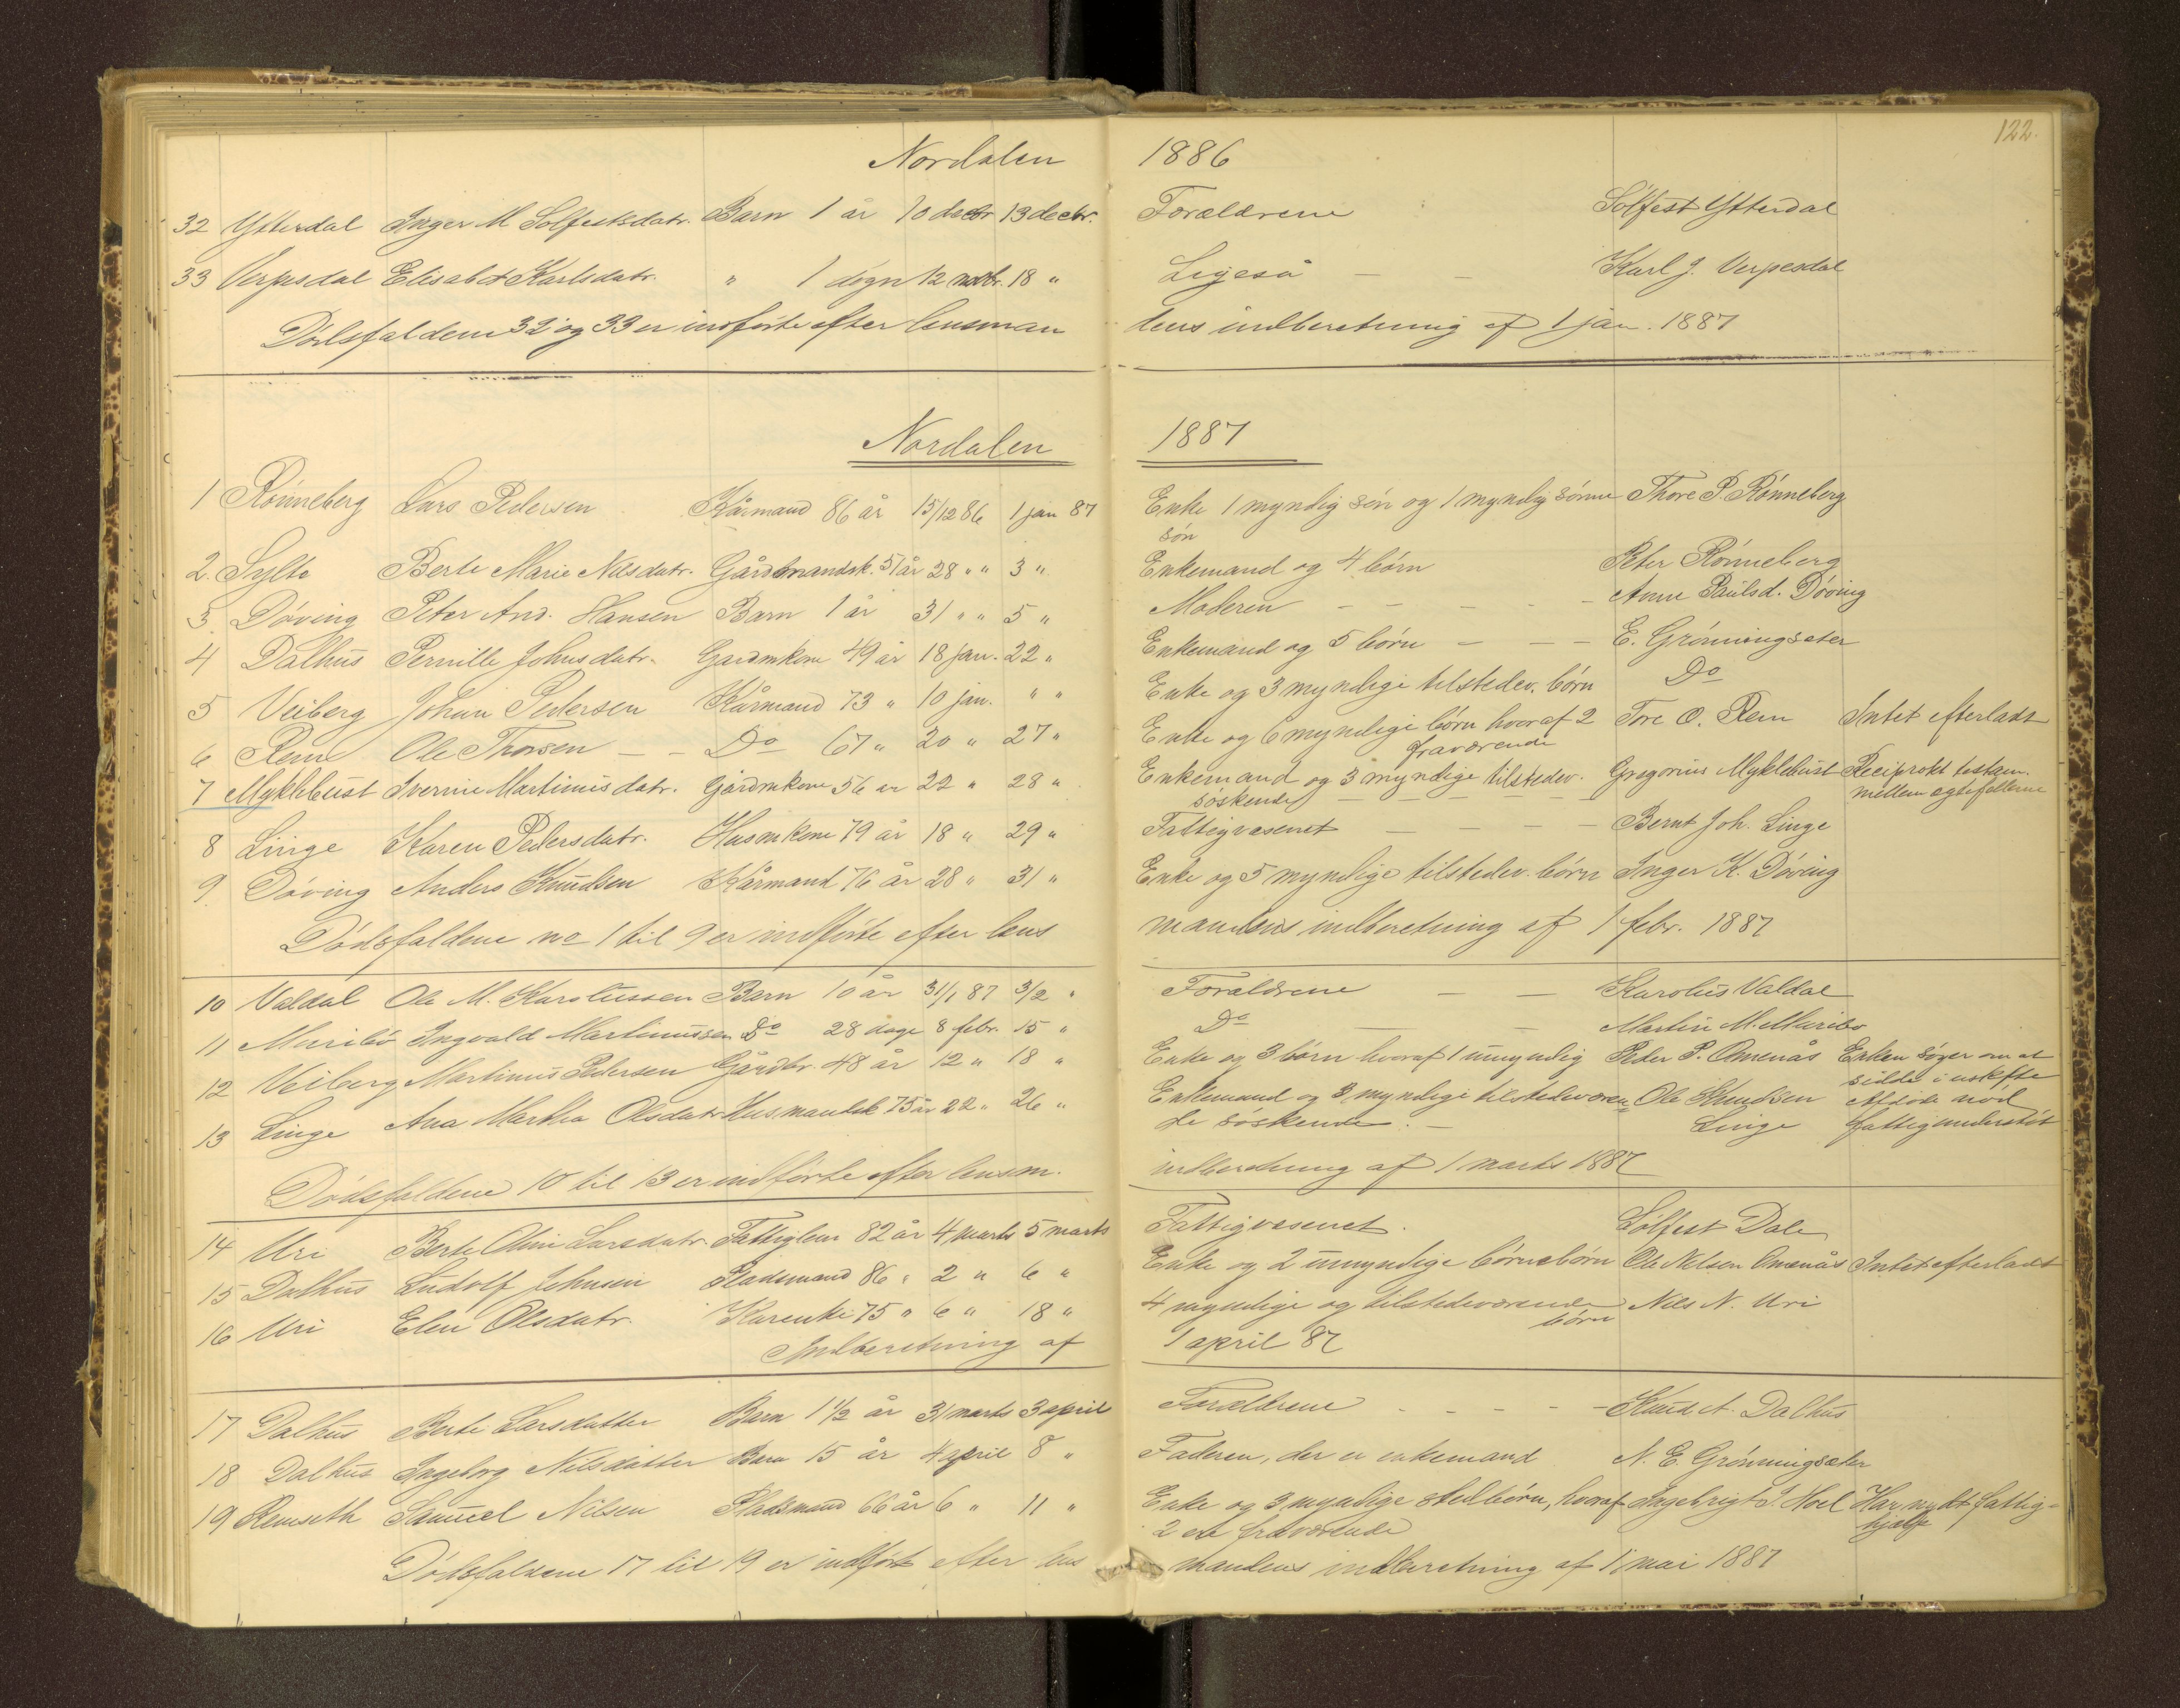 122.
Nordalen 1886
32 Ytterdal Inger M Solfestsdatr. Barn 1 år 10 decbr 13 decbr. Forældrene Solfest Ytterdal
33 Verpesdal Elisabet Karlsdatr. " 1 døgn 12 novbr. 18 " Ligeså — — Karl J. Verpesdal
Dødsfaldene 32 og 33 er indførte efter lensman dens indberetning af 1 jan. 1887
Nordalen 1887
1 Rønneberg Lars Pedersen Kårmand 86 år 15/12 86 1 jan 87 Enke 1 myndig søn og 1 myndig sønne Thore P. Rønneberg
søn
2. Sylte Berte Marie Nilsdatr. Gårdmandsk. 51 år 28 " " 3 " Enkemand og 4 børn Peter Rønneberg
3 Døving Peter And. Hansen Barn 1 år 31 " " 5 " Moderen — — — — — Anne Paulsd. Døving
4 Dalhus Pernille Johnsdatr. Gardmkone 49 år 18 jan. 22 " Enkemand og 5 børn — — — E. Grønningsæter
5 Veiberg Johan Pedersen Kårmand 73 " 10 jan. " " Enke og 3 myndige tilstedev. børn Do
6 Rem Ole Thorsen — — Do 67 " 20 " 27 " Enke og 6 myndige børn hvoraf 2 Tore O. Rem Intet efterladt
fraværende
7 Myklebust Iverine Martinusdatr. Gårdmkone 56 år 22 " 28 " Enkemand og 3 myndige tilstedev. Gregorius Myklebust Reciprokt testam.
søskende — — — — — mellem ægtefællerne
8 Linge Karen Pedersdatr. Husmkone 79 år 18 " 29 " Fattigvæsenet — — — — Bernt Joh. Linge
9. Døving Anders Knudsen Kårmand 76 år 28 " 31 " Enke og 5 myndige tilstedev. børn Inger K. Døving
Dødsfaldene no 1 til 9 er indførte efter lens mandens indberetning af 1 febr. 1887
10 Valdal Ole M. Karolussen Barn 10 år 31/1 87 3/2 " Forældrene — — Karolus Valdal
11 Muribø Ingvald Martinussen Do 28 dage 8 febr. 15 " Do — — Martin M. Muribø
12 Veiberg Martinus Pedersen Gårdbr. 48 år 12 " 18 " Enke og 3 børn hvoraf 1 umyndig Peder P. Omenås Enken søger om at
sidde i uskifte
13 Linge Ana Martha Olsdatr Husmandsk 75 år 22 " 26 " Enkemand og 3 myndige tilstedeværen Ole Knudsen Afdøde nød
de søskende. — Linge fattigunderstøt
Dødsfaldene 10 til 13 er indførte efter lensm. indberetning af 1 marts 1887
14 Uri Berte Oline Larsdatr. Fattiglem 82 år 4 marts 5 marts Fattigvæsenet. Solfest Dale
15 Dalhus Ludolf Johnsen Pladsmand 86 " 2 " 6 " Enke og 2 umyndige børnebørn Ole Nelsen Omenås Intet efterladt
16 Uri Elen Olsdatr. Karenke 75 " 6 " 18 " 4 myndige og tilstedeværende Nils N. Uri
børn
Indberetning af 1 april 87
17 Dalhus Berte Larsdatter Barn 1 1/2 år 31 marts 3 april Forældrene - - - - - Knud A. Dalhus
18 Dalhus Ingeborg Nilsdatter Barn 15 år 4 april 8 " Faderen, der er enkemand N. E. Grønningsæter
19 Remseth Samuel Nilsen Pladsmand 66 år 6 " 11 " Enke og 3 myndige stedbørn, hvoraf Ingebrigt J. Hoel Har nydt fattig-
2 ere fraværende hjælp
Dødsfaldene 17 til 19 er indførte efter lens mandens indberetning af 1 mai 1887